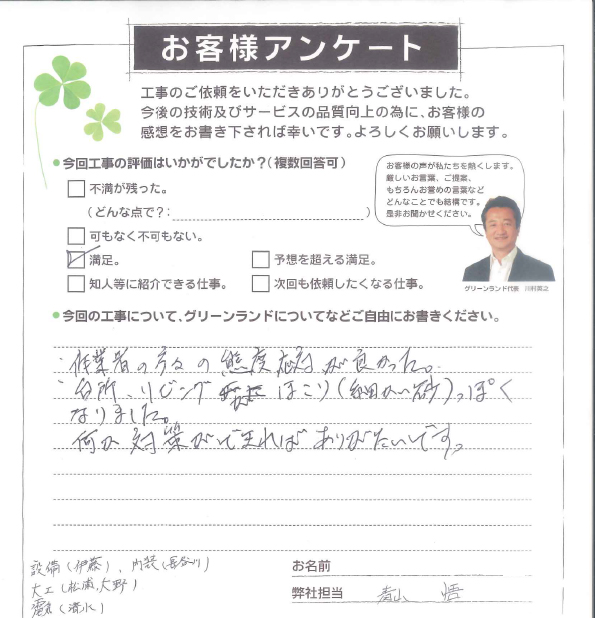 お客様アンケート
工事のご依頼をいただきありがとうございました。
今後の技術及びサービスの品質向上の為に、お客様の
感想をお書き下されば幸いです。よろしくお願いします。
●今回工事の評価はいかがでしたか？（複数回答可）
不満が残った。
（どんな点で？：　　　　　）
可もなく不可もない。
満足。
予想を超える満足。
知人等に紹介できる仕事。
次回も依頼したくなる仕事。
お客様の声が私たちを熱くします。
厳しいお言葉、ご提案、
もちろんお誉めの言葉など
どんなことでも結構です。
是非お聞かせください。
グリーンランド代表　川村英之
●今回の工事について、グリーンランドについてなどご自由にお書きください。
・作業者の方々の態度応対が良かった。
・台所、リビング ほこり（細かい砂）っぽく
なりました。
何か対策ができればありがたいです。
設備（伊藤）、内装（長谷川）
大工（松浦、大野）
電気（清水）
お名前
弊社担当　青山　悟